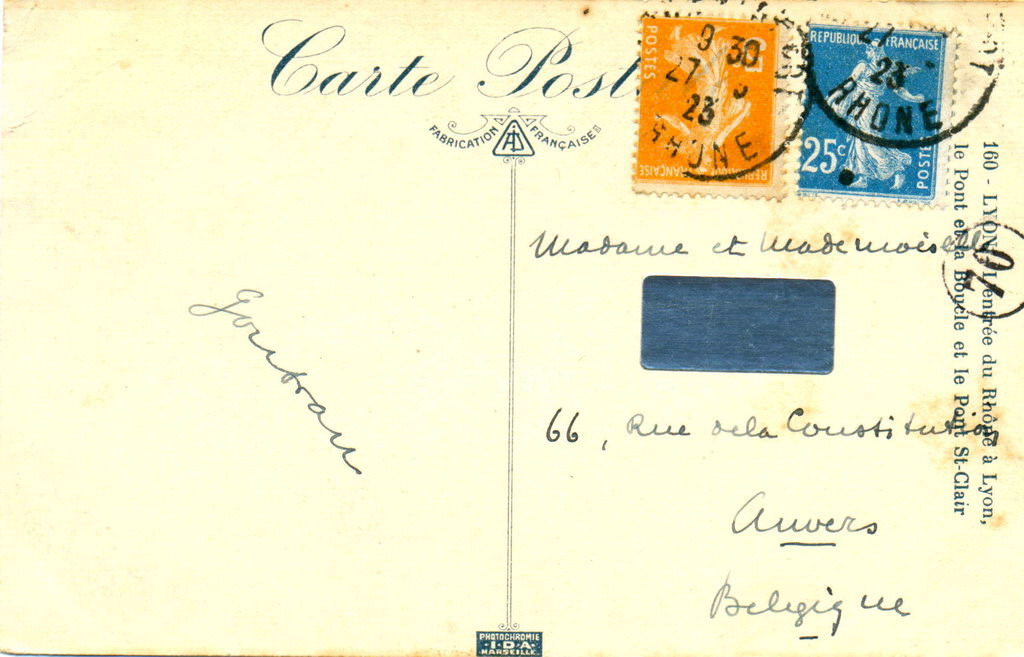 Carte Post
FABRICATION FRANÇAISE
POSTES
REPUBLIQUE FRANÇAISE
9 30
27
23
RHONE
REPUBLIQUE FRANÇAISE
25c
POSTES
23
RHONE
Madame et Mademoiselle
66, Rue de la Constitution
Anvers
Belgique
Gontran
160 - LYON - L'entrée du Rhône à Lyon,
le Pont et la Boucle et le Pont St-Clair
PHOTOCHROMIE
I.D.A.
MARSEILLE